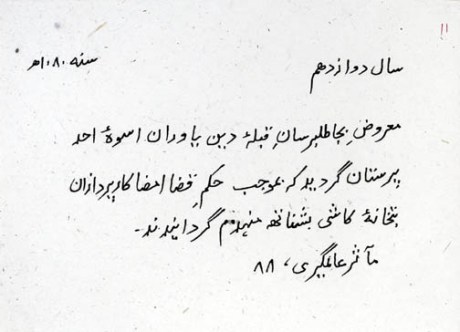 ۱۱
سال دوازدهم
سنه ۱۰۸۰ھ
معروض بجا طلبرسان قبلۂ دین یاوران اسوۂ احد
پرستان گردید کہ بموجب حکم قضا امضا کارپردازان
بتخانۂ کاشی بشناتھ منہدم گردانیدند۔
مآثر عالمگیری، ۸۸